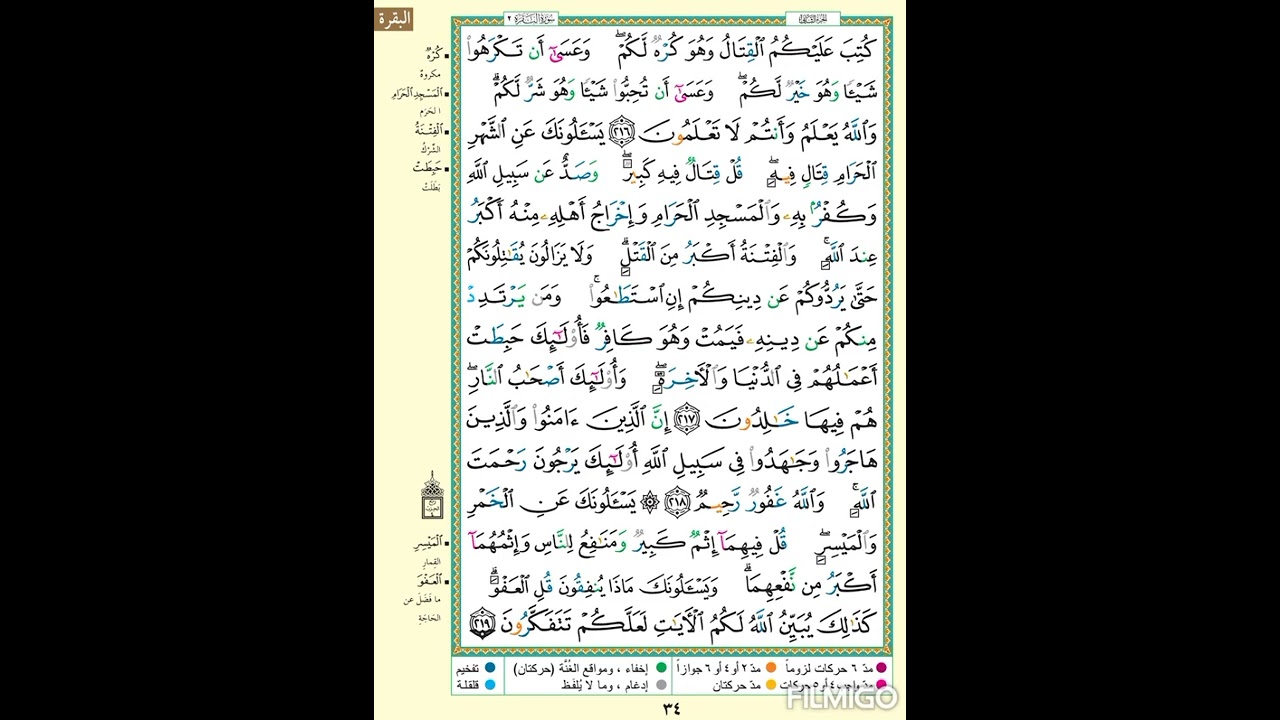 البقرة
سورة البقرة ٢
الجزء الثاني
كُتِبَ عَلَيْكُمُ ٱلْقِتَالُ وَهُوَ كُرْهٌ لَّكُمْ ۖ وَعَسَىٰٓ أَن تَكْرَهُوا۟
شَيْـًٔا وَهُوَ خَيْرٌ لَّكُمْ ۖ وَعَسَىٰٓ أَن تُحِبُّوا۟ شَيْـًٔا وَهُوَ شَرٌّ لَّكُمْ ۗ
وَٱللَّهُ يَعْلَمُ وَأَنتُمْ لَا تَعْلَمُونَ ٢١٦ يَسْـَٔلُونَكَ عَنِ ٱلشَّهْرِ
ٱلْحَرَامِ قِتَالٍ فِيهِ ۖ قُلْ قِتَالٌ فِيهِ كَبِيرٌ ۖ وَصَدٌّ عَن سَبِيلِ ٱللَّهِ
وَكُفْرٌۢ بِهِۦ وَٱلْمَسْجِدِ ٱلْحَرَامِ وَإِخْرَاجُ أَهْلِهِۦ مِنْهُ أَكْبَرُ
عِندَ ٱللَّهِ ۚ وَٱلْفِتْنَةُ أَكْبَرُ مِنَ ٱلْقَتْلِ ۗ وَلَا يَزَالُونَ يُقَـٰتِلُونَكُمْ
حَتَّىٰ يَرُدُّوكُمْ عَن دِينِكُمْ إِنِ ٱسْتَطَـٰعُوا۟ ۚ وَمَن يَرْتَدِدْ
مِنكُمْ عَن دِينِهِۦ فَيَمُتْ وَهُوَ كَافِرٌ فَأُو۟لَـٰٓئِكَ حَبِطَتْ
أَعْمَـٰلُهُمْ فِى ٱلدُّنْيَا وَٱلْـَٔاخِرَةِ ۖ وَأُو۟لَـٰٓئِكَ أَصْحَـٰبُ ٱلنَّارِ ۖ
هُمْ فِيهَا خَـٰلِدُونَ ٢١٧ إِنَّ ٱلَّذِينَ ءَامَنُوا۟ وَٱلَّذِينَ
هَاجَرُوا۟ وَجَـٰهَدُوا۟ فِى سَبِيلِ ٱللَّهِ أُو۟لَـٰٓئِكَ يَرْجُونَ رَحْمَتَ
ٱللَّهِ ۚ وَٱللَّهُ غَفُورٌ رَّحِيمٌ ٢١٨ ۞ يَسْـَٔلُونَكَ عَنِ ٱلْخَمْرِ
وَٱلْمَيْسِرِ ۖ قُلْ فِيهِمَآ إِثْمٌ كَبِيرٌ وَمَنَـٰفِعُ لِلنَّاسِ وَإِثْمُهُمَآ
أَكْبَرُ مِن نَّفْعِهِمَا ۗ وَيَسْـَٔلُونَكَ مَاذَا يُنفِقُونَ قُلِ ٱلْعَفْوَ ۗ
كَذَٰلِكَ يُبَيِّنُ ٱللَّهُ لَكُمُ ٱلْـَٔايَـٰتِ لَعَلَّكُمْ تَتَفَكَّرُونَ ٢١٩
كُرْهٌ
مكروهٌ
ٱلْمَسْجِدِ ٱلْحَرَامِ
الحَرَم
ٱلْفِتْنَةُ
الشِّرْكُ
حَبِطَتْ
بَطَلَتْ
ربع الحزب ٤
ٱلْمَيْسِرِ
القِمارِ
ٱلْعَفْوَ
ما فَضَلَ عن
الحَاجَةِ
مدّ ٦ حركات لزوماً
مدّ ٢ أو ٤ أو ٦ جوازاً
إخفاء ، ومواقع الغُنَّة (حركتان)
تفخيم
مدّ واجب ٤ أو ٥ حركات
مدّ حركتان
إدغام ، وما لا يُلفَظ
قلقلة
FILMIGO
٣٤